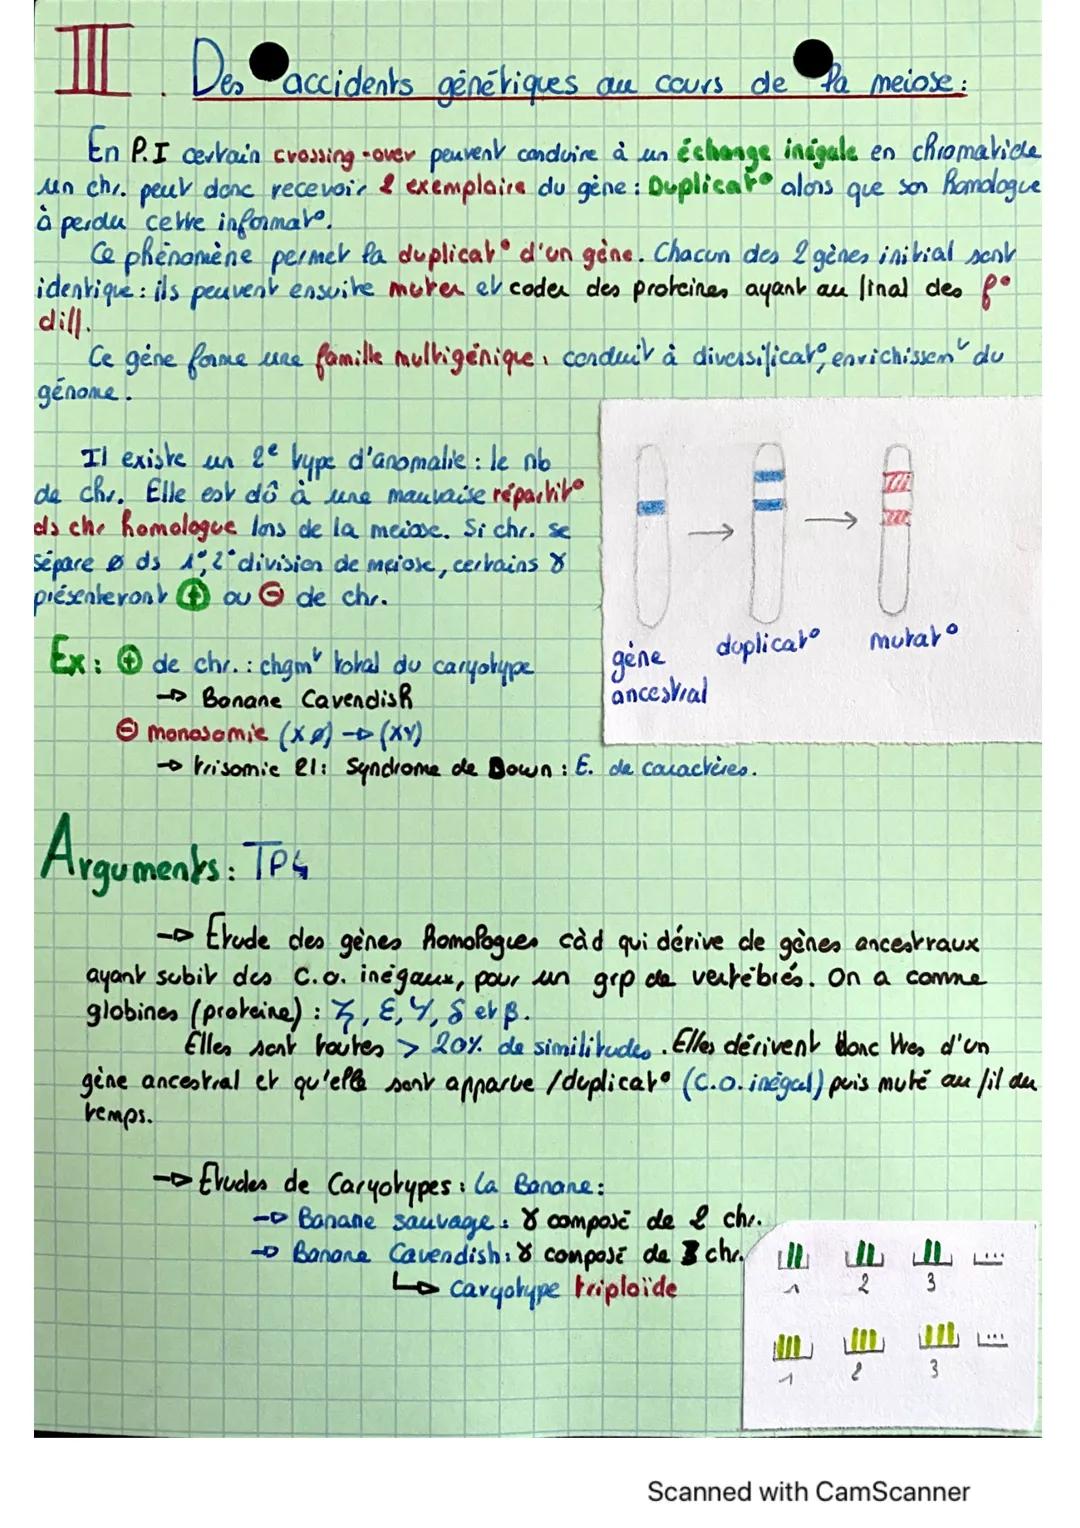 III. Des accidents génétiques au cours de la meiose :
En P.I certain crossing-over peuvent conduire à un échange inégale en chromatide
un chr. peut donc recevoir 2 exemplaire du gène : Duplicat° alors que son homologue
à perdu cette informat°.
Ce phénomène permet la duplicat° d'un gène. Chacun des 2 gènes initial sont
identique : ils peuvent ensuite muter et coder des proteines ayant au final des f°
diff.
Ce gène forme une famille multigénique, conduit à diversificat°, enrichissemt du
génome.
Il existe un 2e type d'anomalie : le nb
de chr. Elle est dû à une mauvaise répartit°
ds chr homologue lors de la meiose. Si chr. se
sépare ø ds 1°, 2° division de meiose, certains γ
présenteront ⊕ ou ⊖ de chr.
gène
ancestral
duplicat°
mutat°
Ex : ⊕ de chr. : chgmt total du caryotype
→ Banane Cavendish
⊖ monosomie (X ø) → (XY)
→ trisomie 21 : Syndrome de Down : E. de caractères.
Arguments : TP4
→ Etude des gènes homologues càd qui dérive de gènes ancestraux
ayant subit des C.O. inégaux, pour un grp de vertébrés. On a comme
globines (proteine) : ζ, ε, γ, δ et β.
Elles sont toutes > 20% de similitudes. Elles dérivent donc ttes d'un
gène ancestral et qu'elle sont apparue /duplicat° (C.O. inégal) puis muté au fil du
temps.
→ Etudes de Caryotypes : La Banane :
→ Banane sauvage : γ composé de 2 chr.
→ Banane Cavendish : γ composé de 3 chr.
↳ Caryotype triploïde
1 2 3 ...
1 2 3 ...
Scanned with CamScanner